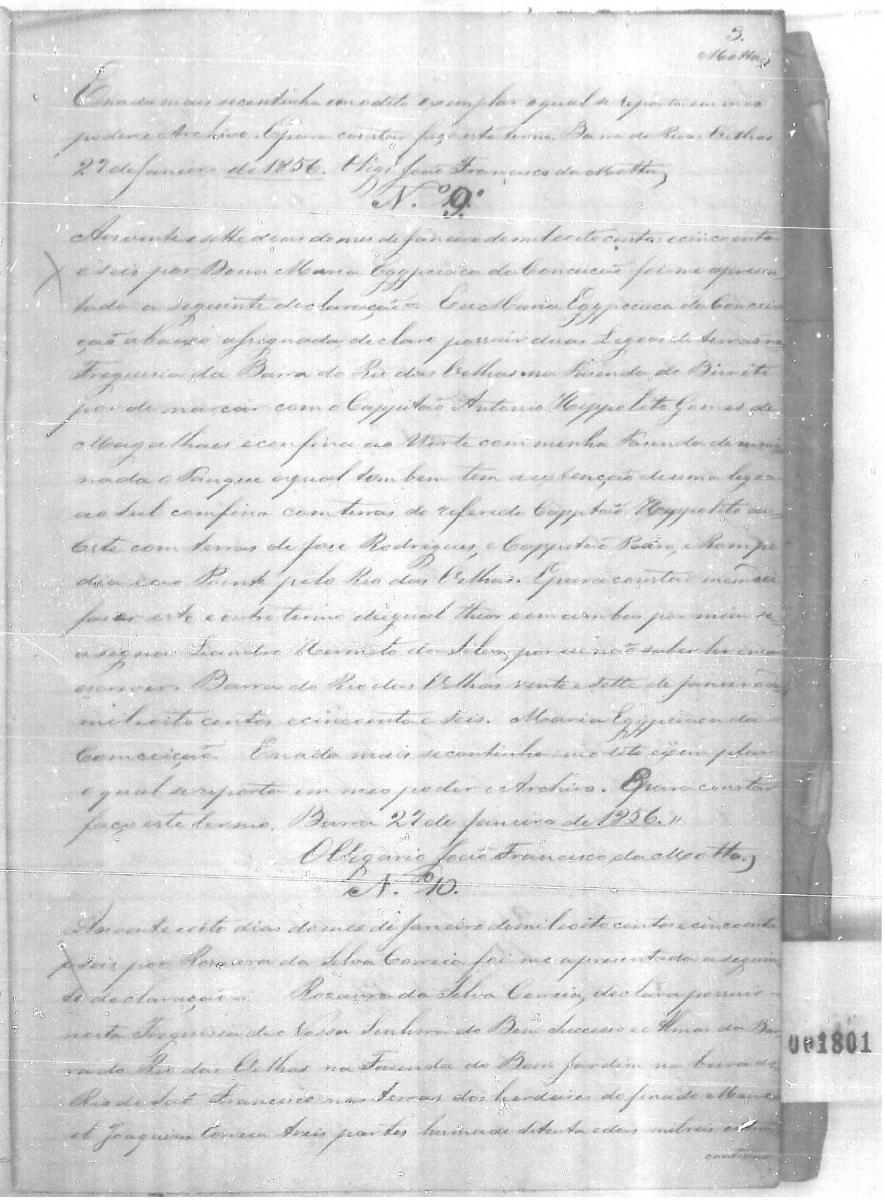 3.
Motta
E nada mais se continha em o dito exemplar o qual se reporta em meo
poder e Archivo. E para constar faço este termo. Barra do Rio das Velhas
27 de Janeiro de 1856. O Vigº João Francisco da Motta
N.º 9.º
Aos vinte e sette dias do mes de Janeiro de mil oito centos e cincoenta
e seis por Dona Maria Egypciaca da Conceicão foi me apresen
tada a seguinte declaração = Eu Maria Egypciaca da Concei
ção abaixo assignada, declaro possuir duas Legoas de terras na
Freguesia da Barra do Rio das Velhas na Fasenda do
por demarcar com o Cappitão Antonio Hyppolito Gomes de
Magalhaes e confina ao Norte com minha Fasenda
nada o Tanque o qual tambem tem a extenção de uma legoa
ao Sul confina com terras do referido Cappitão Hyppolito ao
Este com terras de José Rodrigues, e Cappitão
e ao Poente pelo Rio das Velhas. E para constar mandei
faser este e outro termo de igual theor e em ambos por mim se
assigna Leandro da Silva, por eu não saber ler nem
escrever. Barra do Rio das Velhas vinte e sette de Janeiro de
mil oito centos e cincoenta e seis. Maria Egypciaca da
Conceição. E nada mais se continha em o dito exemplar
o qual se reporta em meo poder e Archivo. E para constar
faço este termo. Barra 27 de Janeiro de 1856.
O Vigario João Francisco da Motta
N.º 10.
Aos vinte e oito dias do mes de Janeiro de mil oito centos e cincoenta
e seis por Rosaura da Silva Correia foi me apresentada a seguin
te declaração: Rosaura da Silva Correia, declara possuir
nesta Freguesia de Nossa Senhora do Bom Successo e Almas da Bar
ra do Rio das Velhas na Fasenda do Bom Jardim na beira do
Rio de São Francisco nas terras dos herdeiros do finado Mano
el Joaquim Correia treis partes huma de setenta e dois mil reis
001801